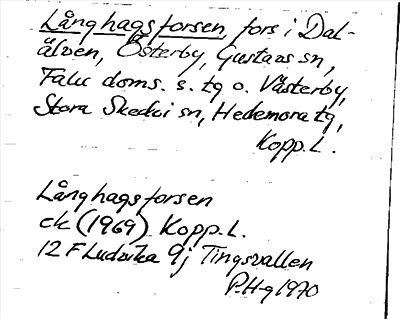 Långhagsforsen, fors i Dal-
älven, Österby, Gustavs sn,
Falu doms. s. tg o. Västerby,
Stora Skedvi sn, Hedemora tg,
Kopp. l.
Långhagsforsen
ek (1969) Kopp. l.
12 F Ludvika 9j Tingsvallen
P.H-g 1970